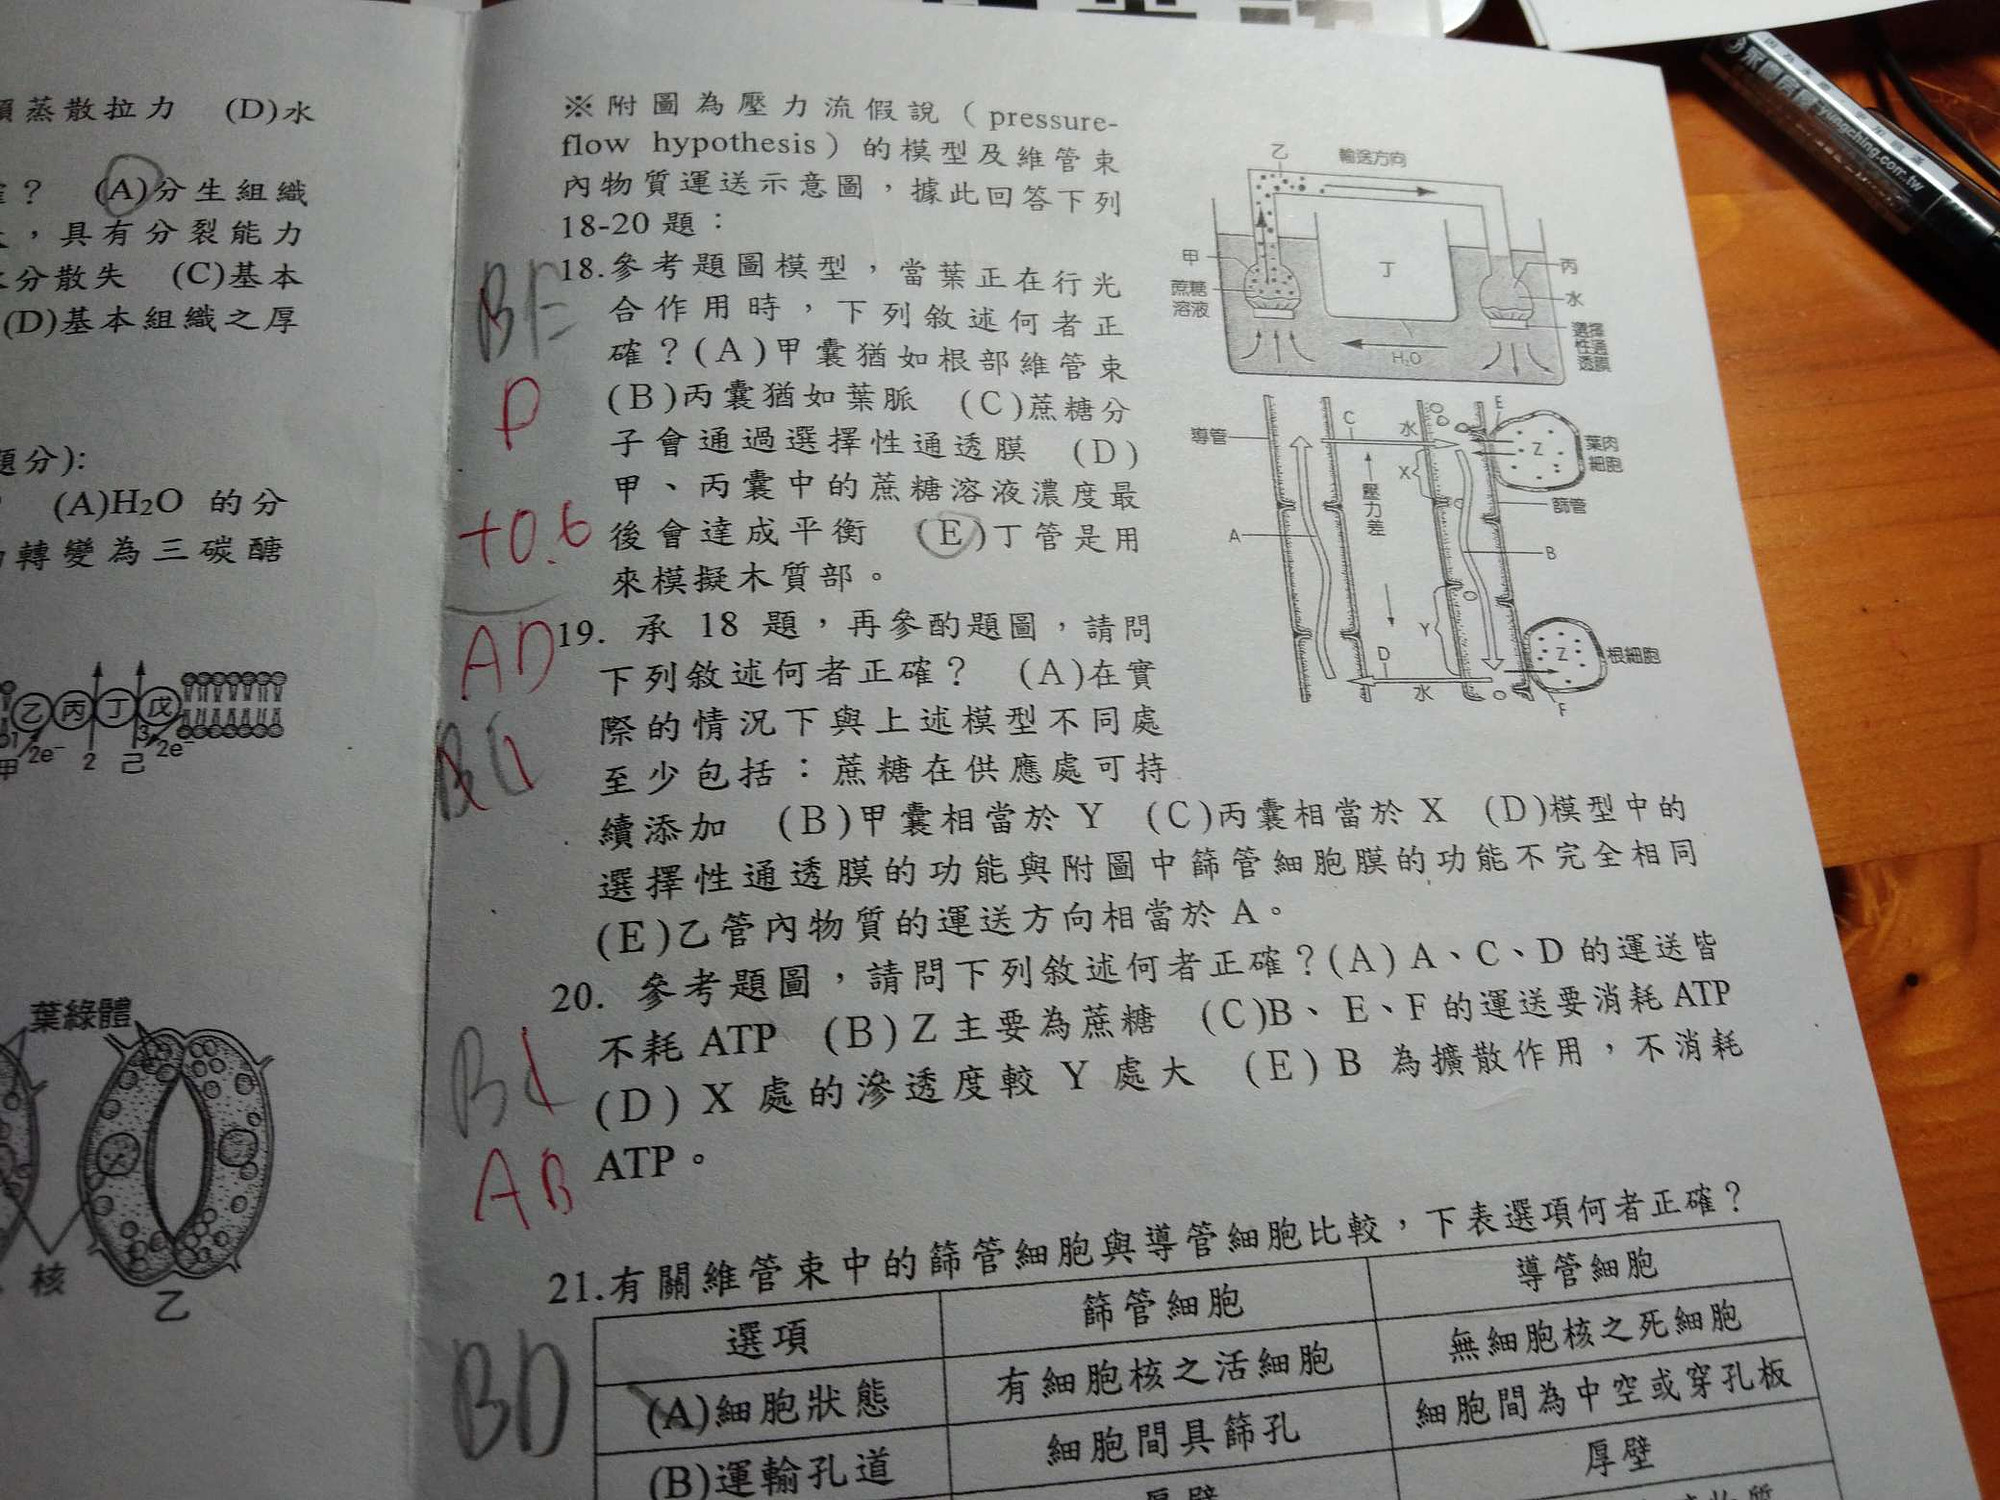 蒸散拉力 (D)水
? (A)分生組織
,具有分裂能力
分散失 (C)基本
(D)基本組織之厚
題分):
(A)H2O 的分
轉變為三碳醣
乙 丙 丁 戊
甲 2e⁻ 2 己 3 2e⁻
葉綠體
核
乙
※附圖為壓力流假說(pressure-
flow hypothesis)的模型及維管束
內物質運送示意圖,據此回答下列
18-20題:
18.參考題圖模型,當葉正在行光
合作用時,下列敘述何者正
確?(A)甲囊猶如根部維管束
(B)丙囊猶如葉脈 (C)蔗糖分
子會通過選擇性通透膜 (D)
甲、丙囊中的蔗糖溶液濃度最
後會達成平衡 (E)丁管是用
來模擬木質部。
BE
D
+0.6
乙 輸送方向
甲
蔗糖
溶液
丁
丙
水
選擇
性通
透膜
H2O
導管
C
水
E
Z
葉肉
細胞
X
壓力差
篩管
A
B
Y
D
水
Z
根細胞
F
19. 承 18 題,再參酌題圖,請問
下列敘述何者正確? (A)在實
際的情況下與上述模型不同處
至少包括:蔗糖在供應處可持
續添加 (B)甲囊相當於 Y (C)丙囊相當於 X (D)模型中的
選擇性通透膜的功能與附圖中篩管細胞膜的功能不完全相同
(E)乙管內物質的運送方向相當於 A。
AD
20. 參考題圖,請問下列敘述何者正確?(A) A、C、D 的運送皆
不耗 ATP (B) Z 主要為蔗糖 (C)B、E、F 的運送要消耗 ATP
(D) X 處的滲透度較 Y 處大 (E) B 為擴散作用,不消耗
ATP。
AB
21.有關維管束中的篩管細胞與導管細胞比較,下表選項何者正確?
BD
選項 篩管細胞 導管細胞
(A)細胞狀態 有細胞核之活細胞 無細胞核之死細胞
(B)運輸孔道 細胞間具篩孔 細胞間為中空或穿孔板
厚壁 厚壁